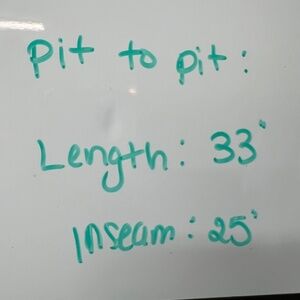 pit to pit:
Length: 33"
Inseam: 25"